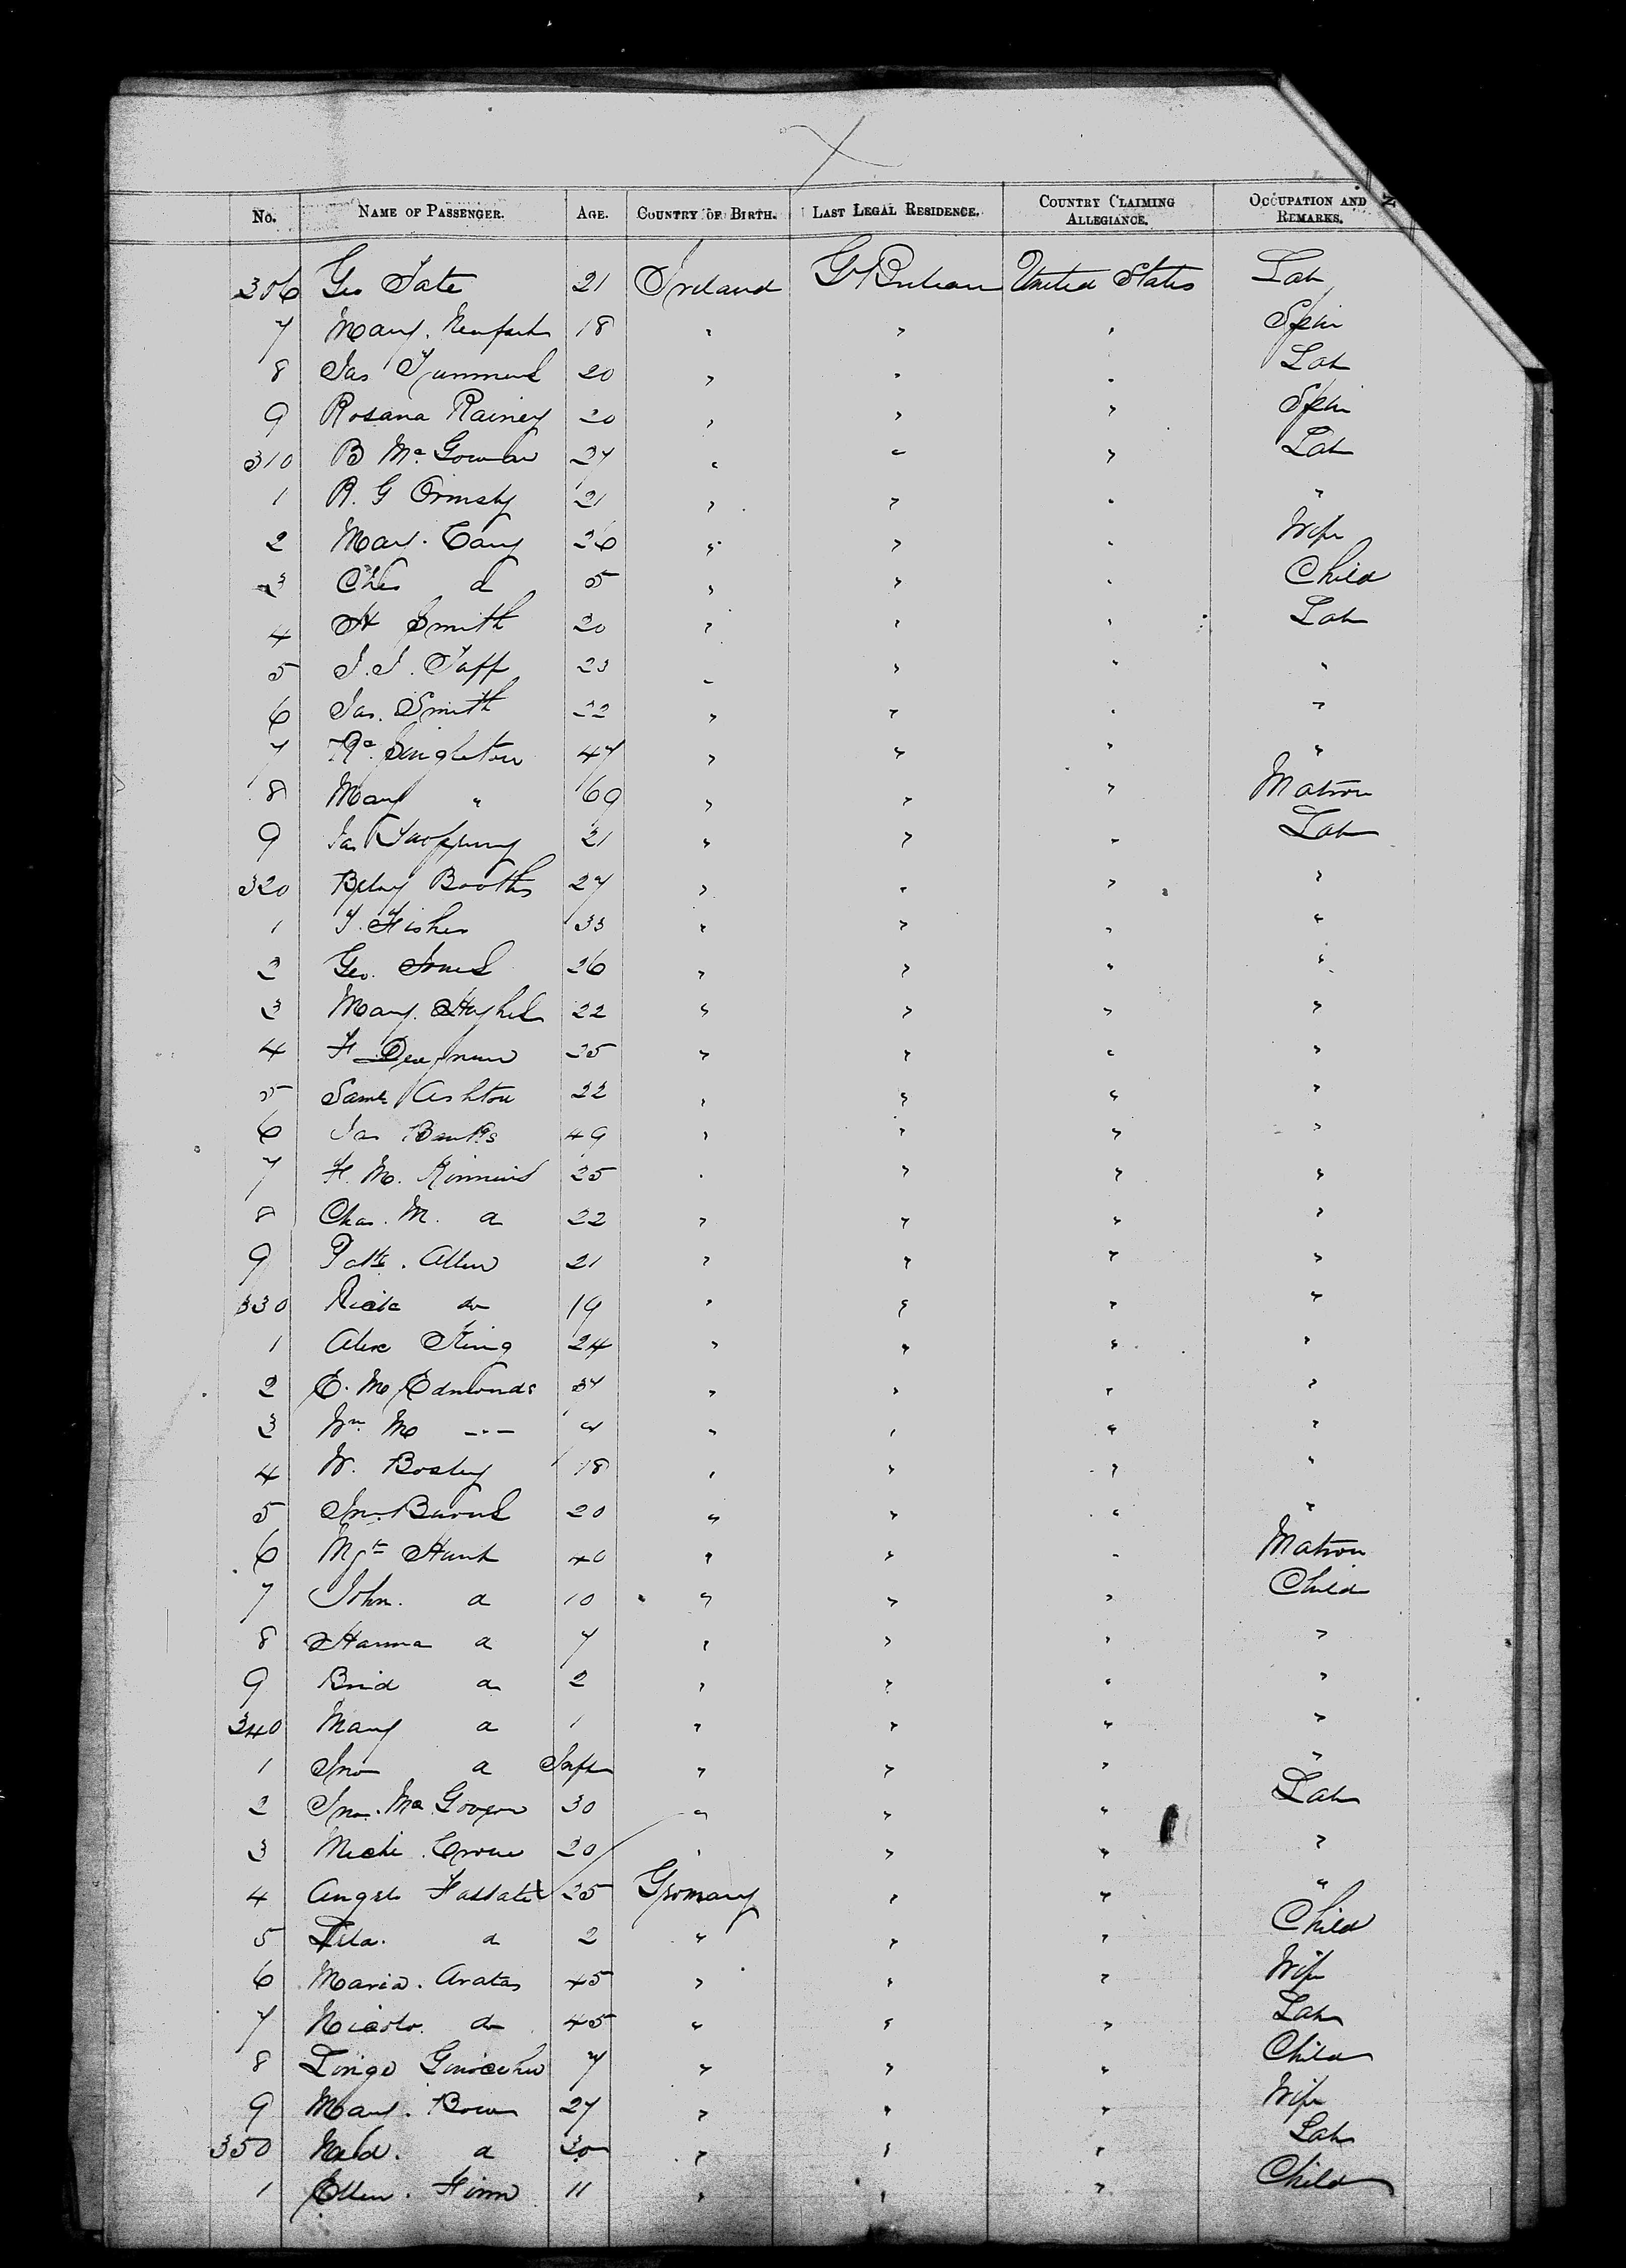 No. NAME OF PASSENGER. AGE. COUNTRY OF BIRTH. LAST LEGAL RESIDENCE. COUNTRY CLAIMING ALLEGIANCE. OCCUPATION AND REMARKS.
306 Geo Tate 21 Ireland Gt Britain United States Lab
7 Mary 18 " " " Spin
8 Jas 20 " " " Lab
9 Rosana Rainey 20 " " " Spin
310 B McGowan 27 " " " Lab
1 R. G Ormsby 21 " " " "
2 Mary Cary 26 " " " Wife
3 Chas d 5 " " " Child
4 H Smith 20 " " " Lab
5 J. J. Taff 23 " " " "
6 Jas. Smith 22 " " " "
7 Singleton 47 " " " "
8 Mary " 69 " " " Matron
9 Jas 21 " " " Lab
320 Booths 27 " " " "
1 T. Fisher 33 " " " "
2 Geo. Jones 26 " " " "
3 Mary Hughes 22 " " " "
4 F 25 " " " "
5 Saml Ashton 22 " " " "
6 Jas Banks 49 " " " "
7 F. M. Kimmins 25 " " " "
8 Chas. M. d 22 " " " "
9 Patk. Allen 21 " " " "
330 do 19 " " " "
1 Alex King 24 " " " "
2 E. M Edmonds 37 " " " "
3 Wm M --- 4 " " " "
4 W. Bosley 18 " " " "
5 Jno. Burns 20 " " " "
6 Mgt Hunt 40 " " " Matron
7 John. d 10 " " " Child
8 Hanna d 7 " " " "
9 Brid d 2 " " " "
340 Mary d 1 " " " "
1 Jno d Inft " " " "
2 Jno. Mc 30 " " " Lab
3 Crowe 20 " " " "
4 Angelo 25 Germany " " "
5 d 2 " " " Child
6 Maria. Aratas 45 " " " Wife
7 Nicolo. do 45 " " " Lab
8 7 " " " Child
9 Mary. 27 " " " Wife
350 Ned. d 30 " " " Lab
1 Ellen. Finn 11 " " " Child